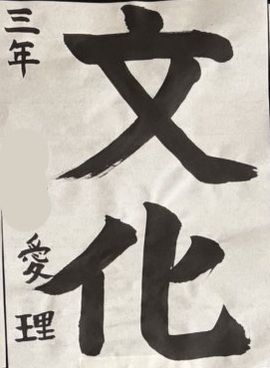 文化
三年
愛理